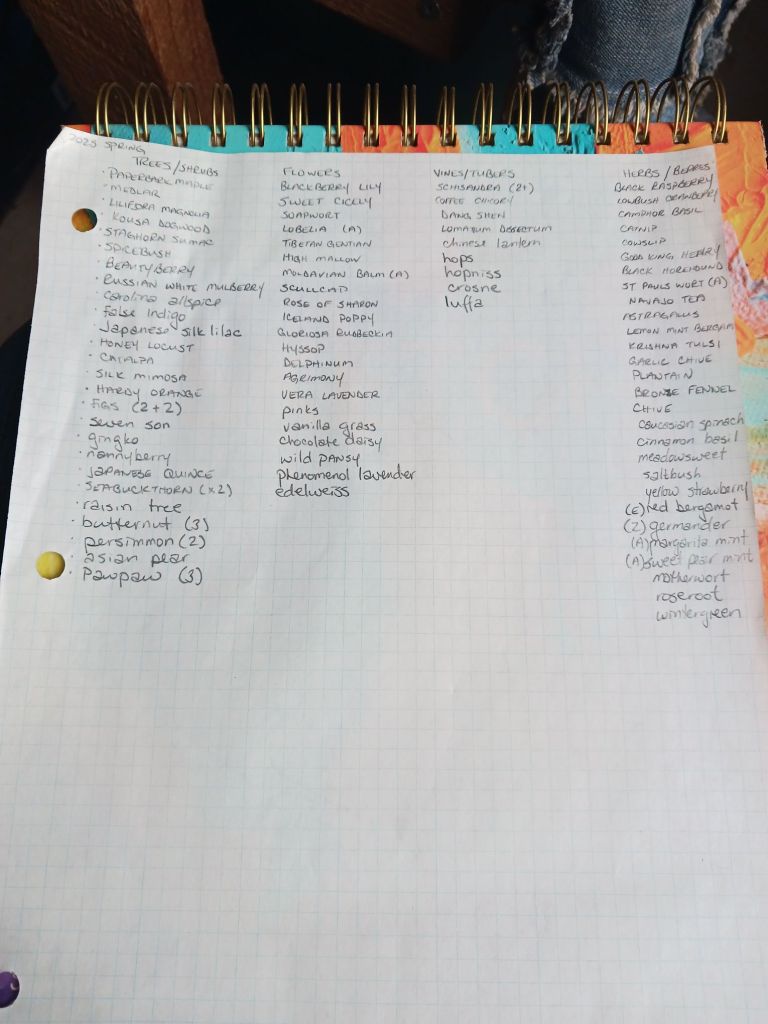 2025 SPRING
TREES/SHRUBS
PAPERBARK MAPLE
MEDLAR
LILIFLORA MAGNOLIA
KOUSA DOGWOOD
STAGHORN SUMAC
SPICEBUSH
BEAUTYBERRY
RUSSIAN WHITE MULBERRY
Carolina allspice
false Indigo
Japanese silk lilac
HONEY LOCUST
CATALPA
SILK MIMOSA
HARDY ORANGE
FIGS (2+2)
seven son
gingko
nannyberry
JAPANESE QUINCE
SEABUCKTHORN (x2)
raisin tree
butternut (3)
persimmon (2)
asian pear
Pawpaw (3)
FLOWERS
BLACKBERRY LILY
SWEET CICELY
SOAPWORT
LOBELIA (A)
TIBETAN GENTIAN
HIGH MALLOW
MOLDAVIAN BALM (A)
SCULLCAP
ROSE OF SHARON
ICELAND POPPY
GLORIOSA RUDBECKIA
HYSSOP
DELPHINUM
AGRIMONY
VERA LAVENDER
pinks
vanilla grass
chocolate daisy
wild PANSY
phenomenol lavender
edelweiss
VINES/TUBERS
SCHISANDRA (2+)
COFFEE CHICORY
DANG SHEN
LOMATIUM DESSERTUM
chinese lantern
hops
hopniss
crosne
luffa
HERBS/BERRIES
BLACK RASPBERRY
LOWBUSH CRANBERRY
CAMPHOR BASIL
CATNIP
COWSLIP
GOOD KING HENRY
BLACK HOREHOUND
ST PAULS WORT (A)
NAVAJO TEA
ASTRAGALUS
LEMON MINT BERGAM
KRISHNA TULSI
GARLIC CHIVE
PLANTAIN
BRONZE FENNEL
CHIVE
Caucasian spinach
Cinnamon basil
meadowsweet
saltbush
yellow strawberry
(E) red bergamot
(Z) germander
(A) margarita mint
(A) sweet pear mint
motherwort
roseroot
wintergreen